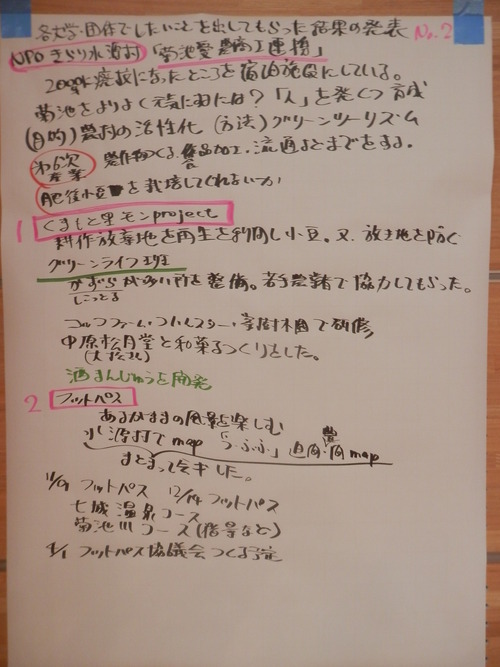 各大学・団体でしたいことを出してもらった結果の発表 No.2
NPOきらり水源村「菊池愛農商工連携」
2000年廃校になったところを宿泊施設にしている。
菊池をよりよく元気にするには？「人」を発くつ育成
(目的) 農村の活性化 (方法) グリーンツーリズム
第6次産業 農作物つくる、作品加工、流通までをする。
肥後小豆を栽培してくれないか
1 くまもと里モンproject
耕作放棄地を再生を利用し小豆。又、放き地を防ぐ
グリーンライフ班
かずらが多い所を整備。若手農業者で協力してもらった。
ゴルフファーム・ で研修
中原松月堂と和菓子づくりをした。
酒まんじゅうを開発
2 フットパス
あるがままの風景を楽しむ
水源村で map 「らふふ」 map
まとまって冬キした。
11/9 フットパス 12/14 フットパス
七城温泉コース
菊池川コース(指導など)
フットパス協議会つくる予定